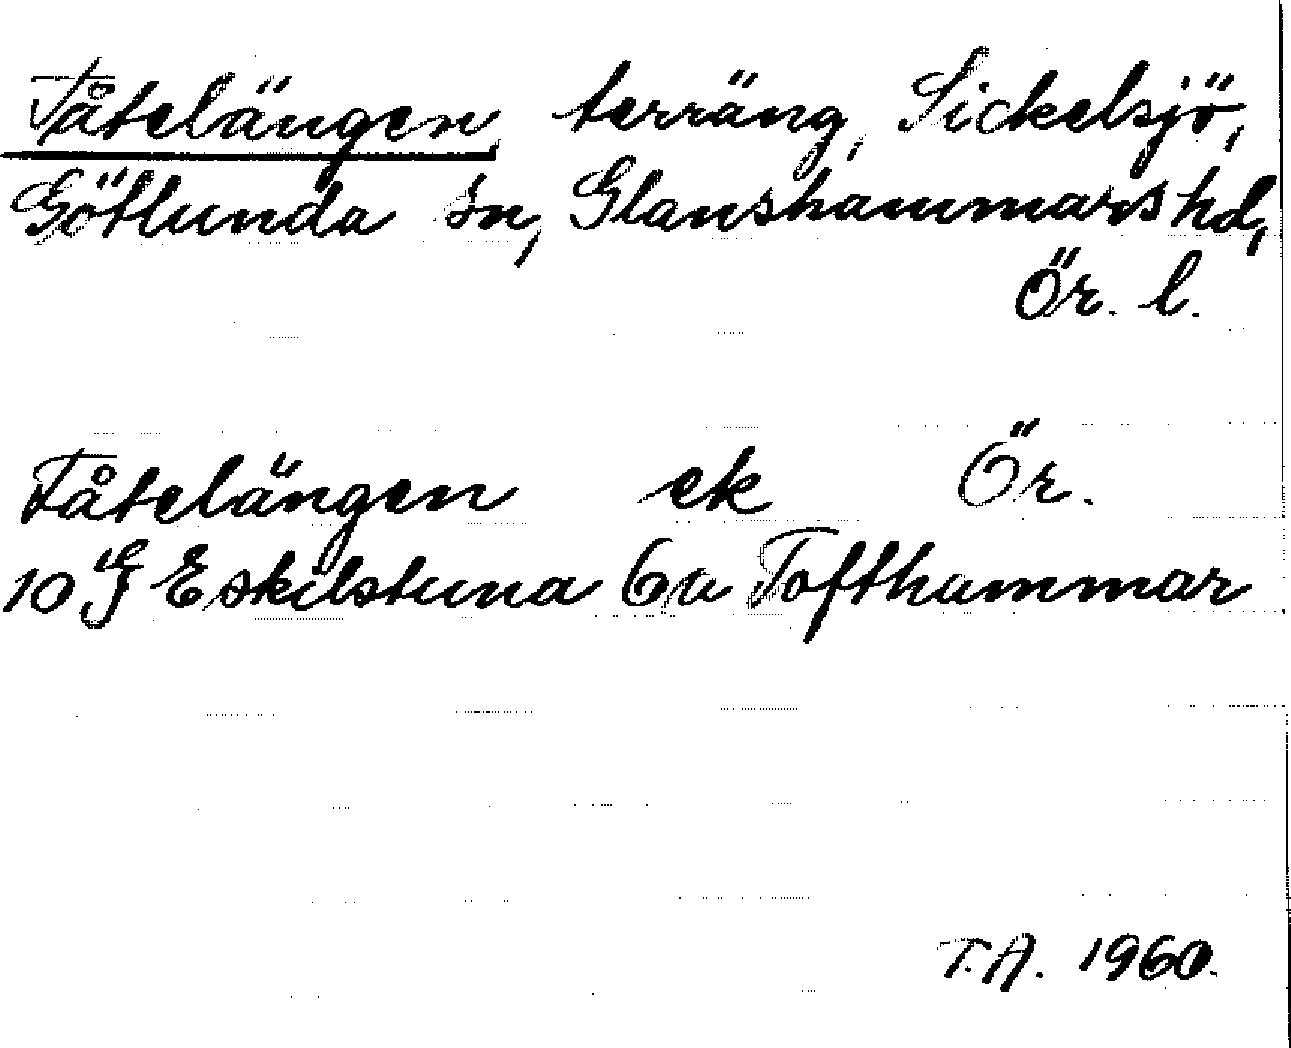 Tåtelängen, terräng, Sickelsjö,
Götlunda sn, Glanshammars hd,
Ör. l.
Tåtelängen ek Ör.
10 G Eskilstuna 6a Tofthammar
T.A. 1960.